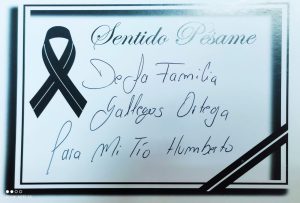 Sentido Pésame
De la Familia
Gallegos Ortega
Para Mi Tío Humberto